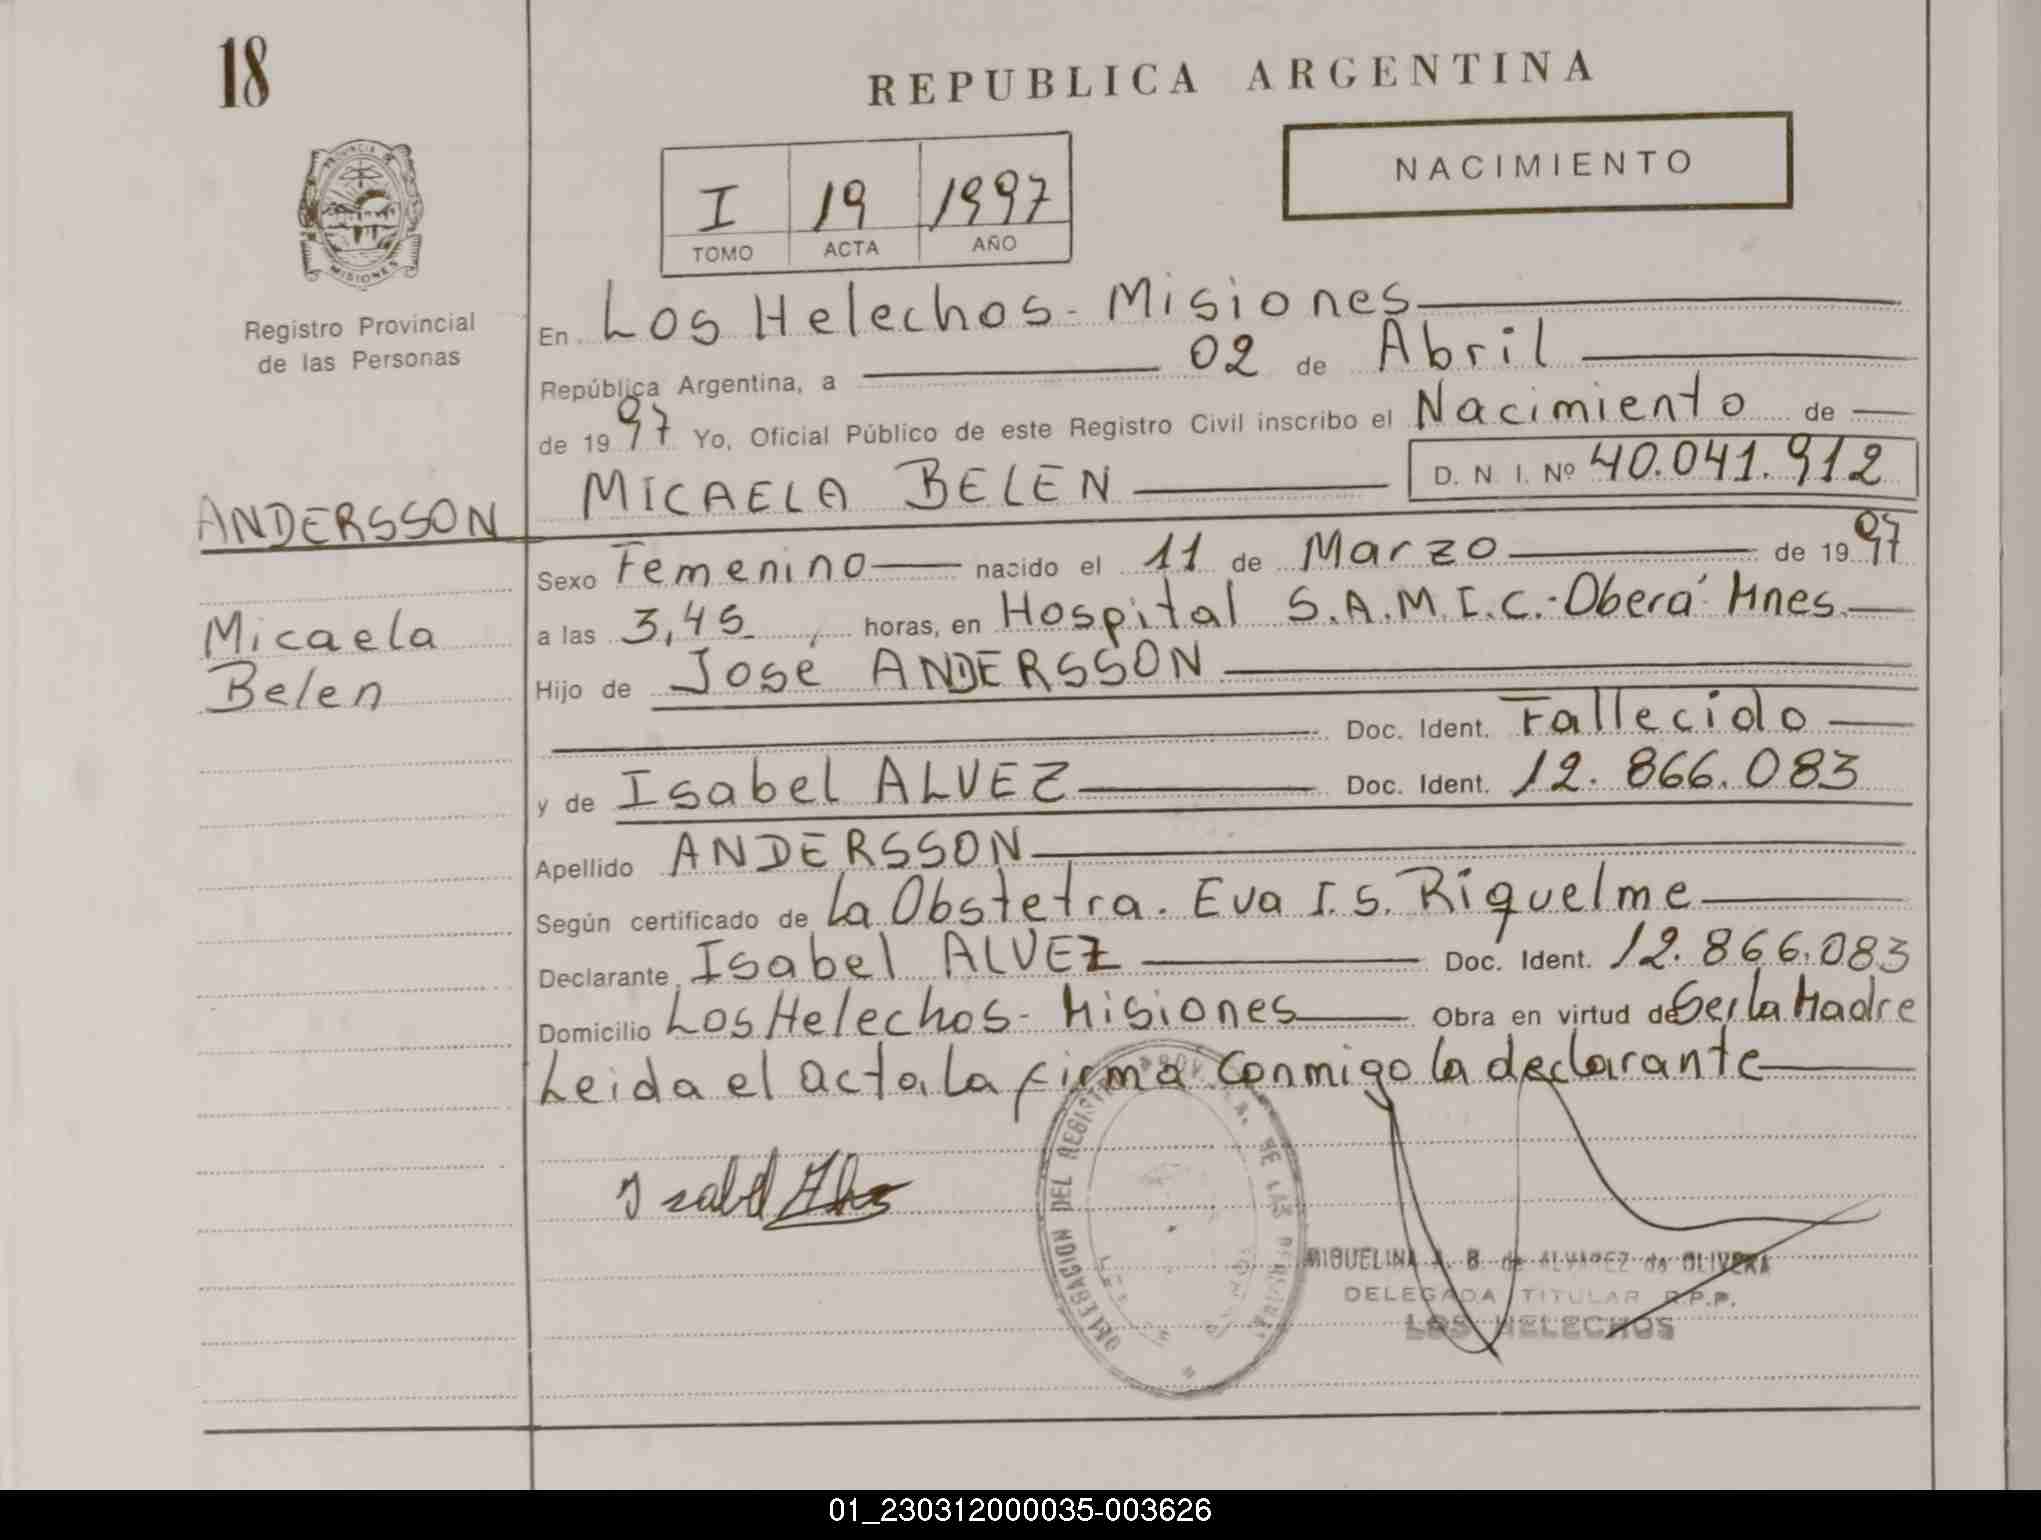 18
REPUBLICA ARGENTINA
NACIMIENTO
I 19 1997
TOMO ACTA AÑO
PROVINCIA DE
MISIONES
Registro Provincial
de las Personas
En Los Helechos - Misiones
República Argentina, a 02 de Abril
de 1997 Yo, Oficial Público de este Registro Civil inscribo el Nacimiento de
MICAELA BELEN D. N. I. Nº 40.041.912
ANDERSSON
Micaela
Belen
Sexo Femenino nacido el 11 de Marzo de 1997
a las 3,45 horas, en Hospital S.A.M.I.C.- Oberá Mnes.
Hijo de José ANDERSSON
Doc. Ident. Fallecido
y de Isabel ALVEZ Doc. Ident. 12.866.083
Apellido ANDERSSON
Según certificado de La Obstetra. Eva I. S. Riquelme
Declarante Isabel ALVEZ Doc. Ident. 12.866.083
Domicilio Los Helechos - Misiones Obra en virtud de Ser la Madre
Leida el acta, la firma conmigo la declarante
Isabel
DELEGACION DEL REGISTRO PROV. DE LAS PERSONAS
MIGUELINA A. B. de ALVAREZ de OLIVERA
DELEGADA TITULAR R.P.P.
LOS HELECHOS
01_230312000035-003626